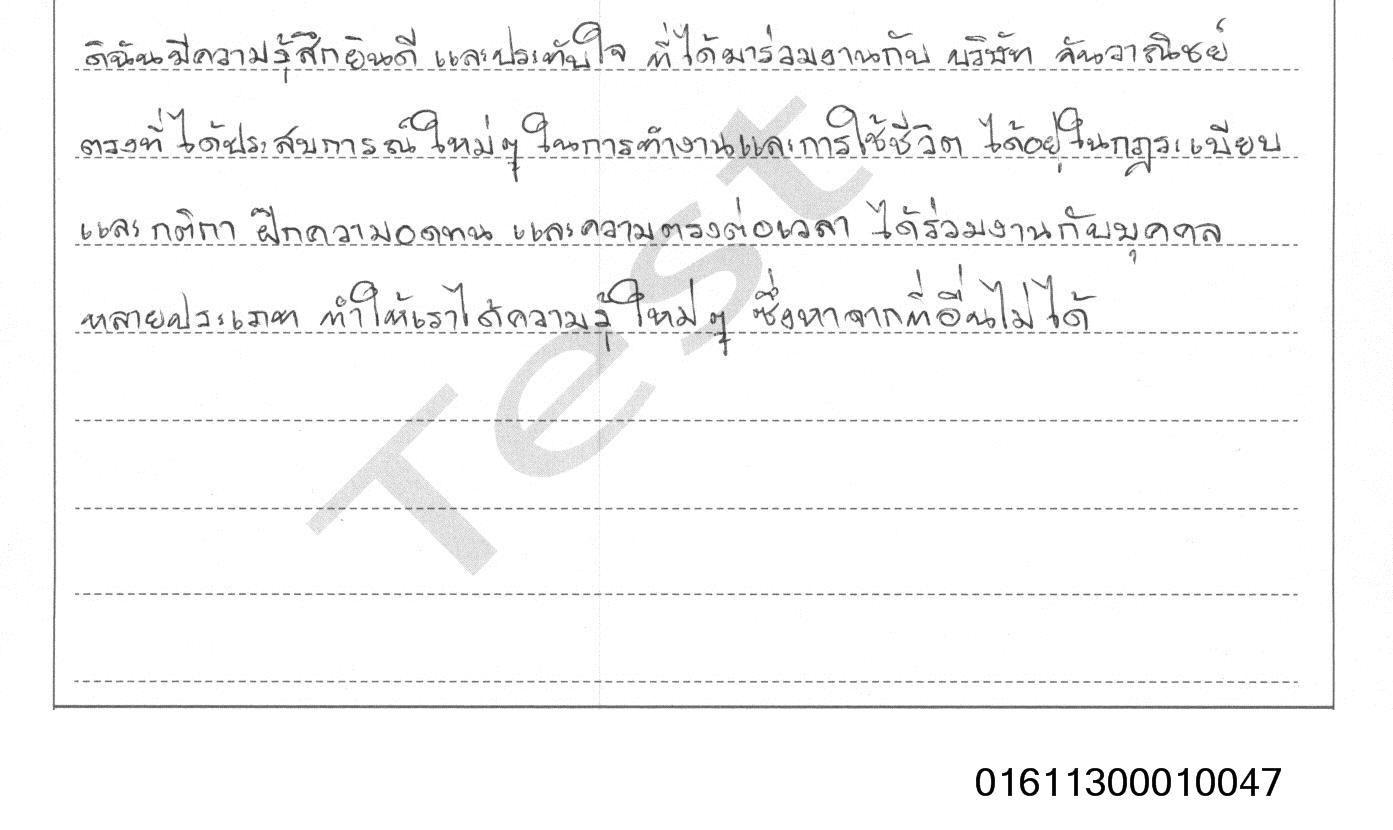 ดิฉันมีความรู้สึกยินดี และประทับใจ ที่ได้มาร่วมงานกับ บริษัท จันวาณิชย์
ตรงที่ได้ประสบการณ์ใหม่ๆ ในการทำงานและการใช้ชีวิต ได้อยู่ในกฎระเบียบ
และ กติกา ฝึกความอดทน และความตรงต่อเวลา ได้ร่วมงานกับบุคคล
หลายประเภท ทำให้เราได้ความรู้ใหม่ๆ ซึ่งหาจากที่อื่นไม่ได้
Test
01611300010047